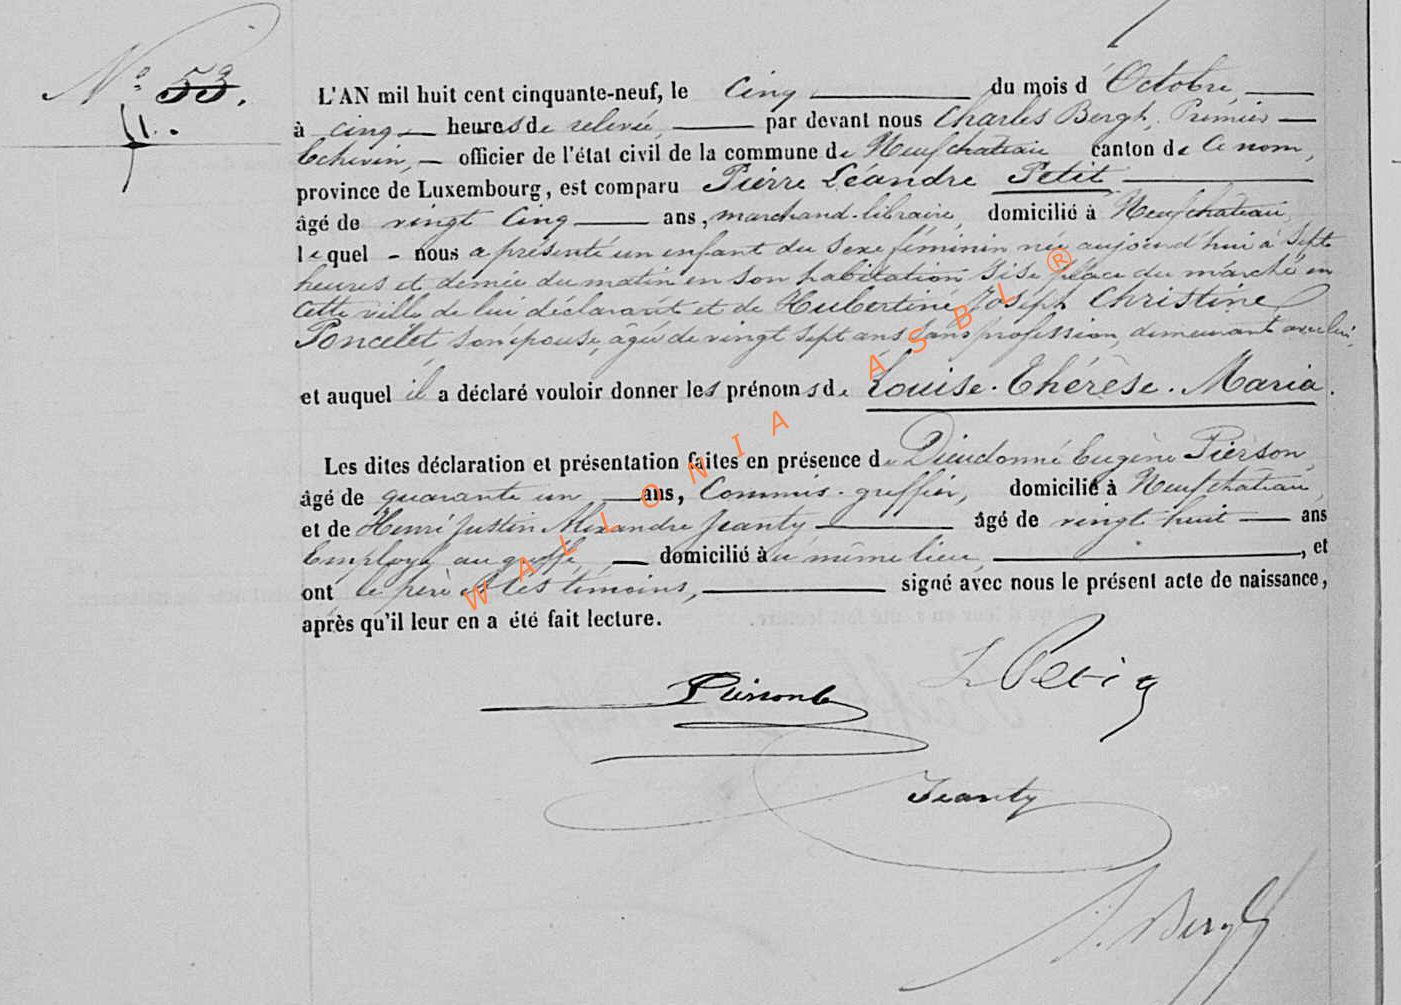 N° 53.
51.
L'AN mil huit cent cinquante-neuf, le cinq du mois d'Octobre
à cinq heures de relevée, par devant nous Charles Bergh, Premier
Echevin, officier de l'état civil de la commune de Neufchateau canton de ce nom,
province de Luxembourg, est comparu Pierre Léandre Petit,
âgé de vingt cinq ans, marchand-libraire, domicilié à Neufchateau,
lequel nous a présenté un enfant du sexe féminin née aujourd'hui à sept
heures et demie du matin en son habitation sise place du marché en
cette ville de lui déclarant et de Hubertine Joseph Christine
Poncelet, son épouse, âgée de vingt sept ans sans profession, demeurant avec lui.
et auquel il a déclaré vouloir donner les prénoms de Louise-Thérèse-Maria.
Les dites déclaration et présentation faites en présence de Dieudonné Eugène Pierson
âgé de quarante un ans, Commis-greffier, domicilié à Neufchateau,
et de Henri Justin Alexandre Jeanty âgé de vingt huit ans
Employé au greffe, domicilié au même lieu, , et
ont le père et les témoins, signé avec nous le présent acte de naissance,
après qu'il leur en a été fait lecture.
L Petit
Pierson
Jeanty
Bergh
WALLONIA ASBL ®